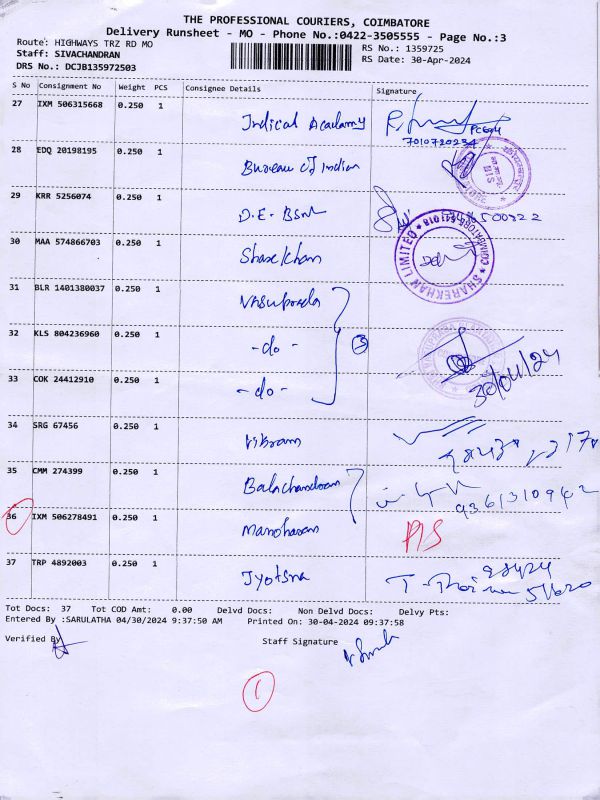 THE PROFESSIONAL COURIERS, COIMBATORE
Delivery Runsheet - MO - Phone No.:0422-3505555 - Page No.:3
Route: HIGHWAYS TRZ RD MO
RS No.: 1359725
Staff: SIVACHANDRAN
RS Date: 30-Apr-2024
DRS No.: DCJB135972503
S No Consignment No Weight PCS Consignee Details Signature
27 IXM 506315668 0.250 1 Indical Academy
7010720234
28 EDQ 20198195 0.250 1 Bureau of Indian
BIS
29 KRR 5256074 0.250 1 D.E. BSNL
30 MAA 574866703 0.250 1 Sharekhan
SHAREKHAN LIMITED * COIMBATORE-641018 *
31 BLR 1401380037 0.250 1
32 KLS 804236960 0.250 1 -do- 3
33 COK 24412910 0.250 1 -do-
30/04/24
34 SRG 67456 0.250 1 Vikram
35 CMM 274399 0.250 1 Balachandran
9361310942
36 IXM 506278491 0.250 1 Manoharan
37 TRP 4892003 0.250 1 Jyotsna
Tot Docs: 37 Tot COD Amt: 0.00 Delvd Docs: Non Delvd Docs: Delvy Pts:
Entered By :SARULATHA 04/30/2024 9:37:50 AM Printed On: 30-04-2024 09:37:58
Verified By Staff Signature
1